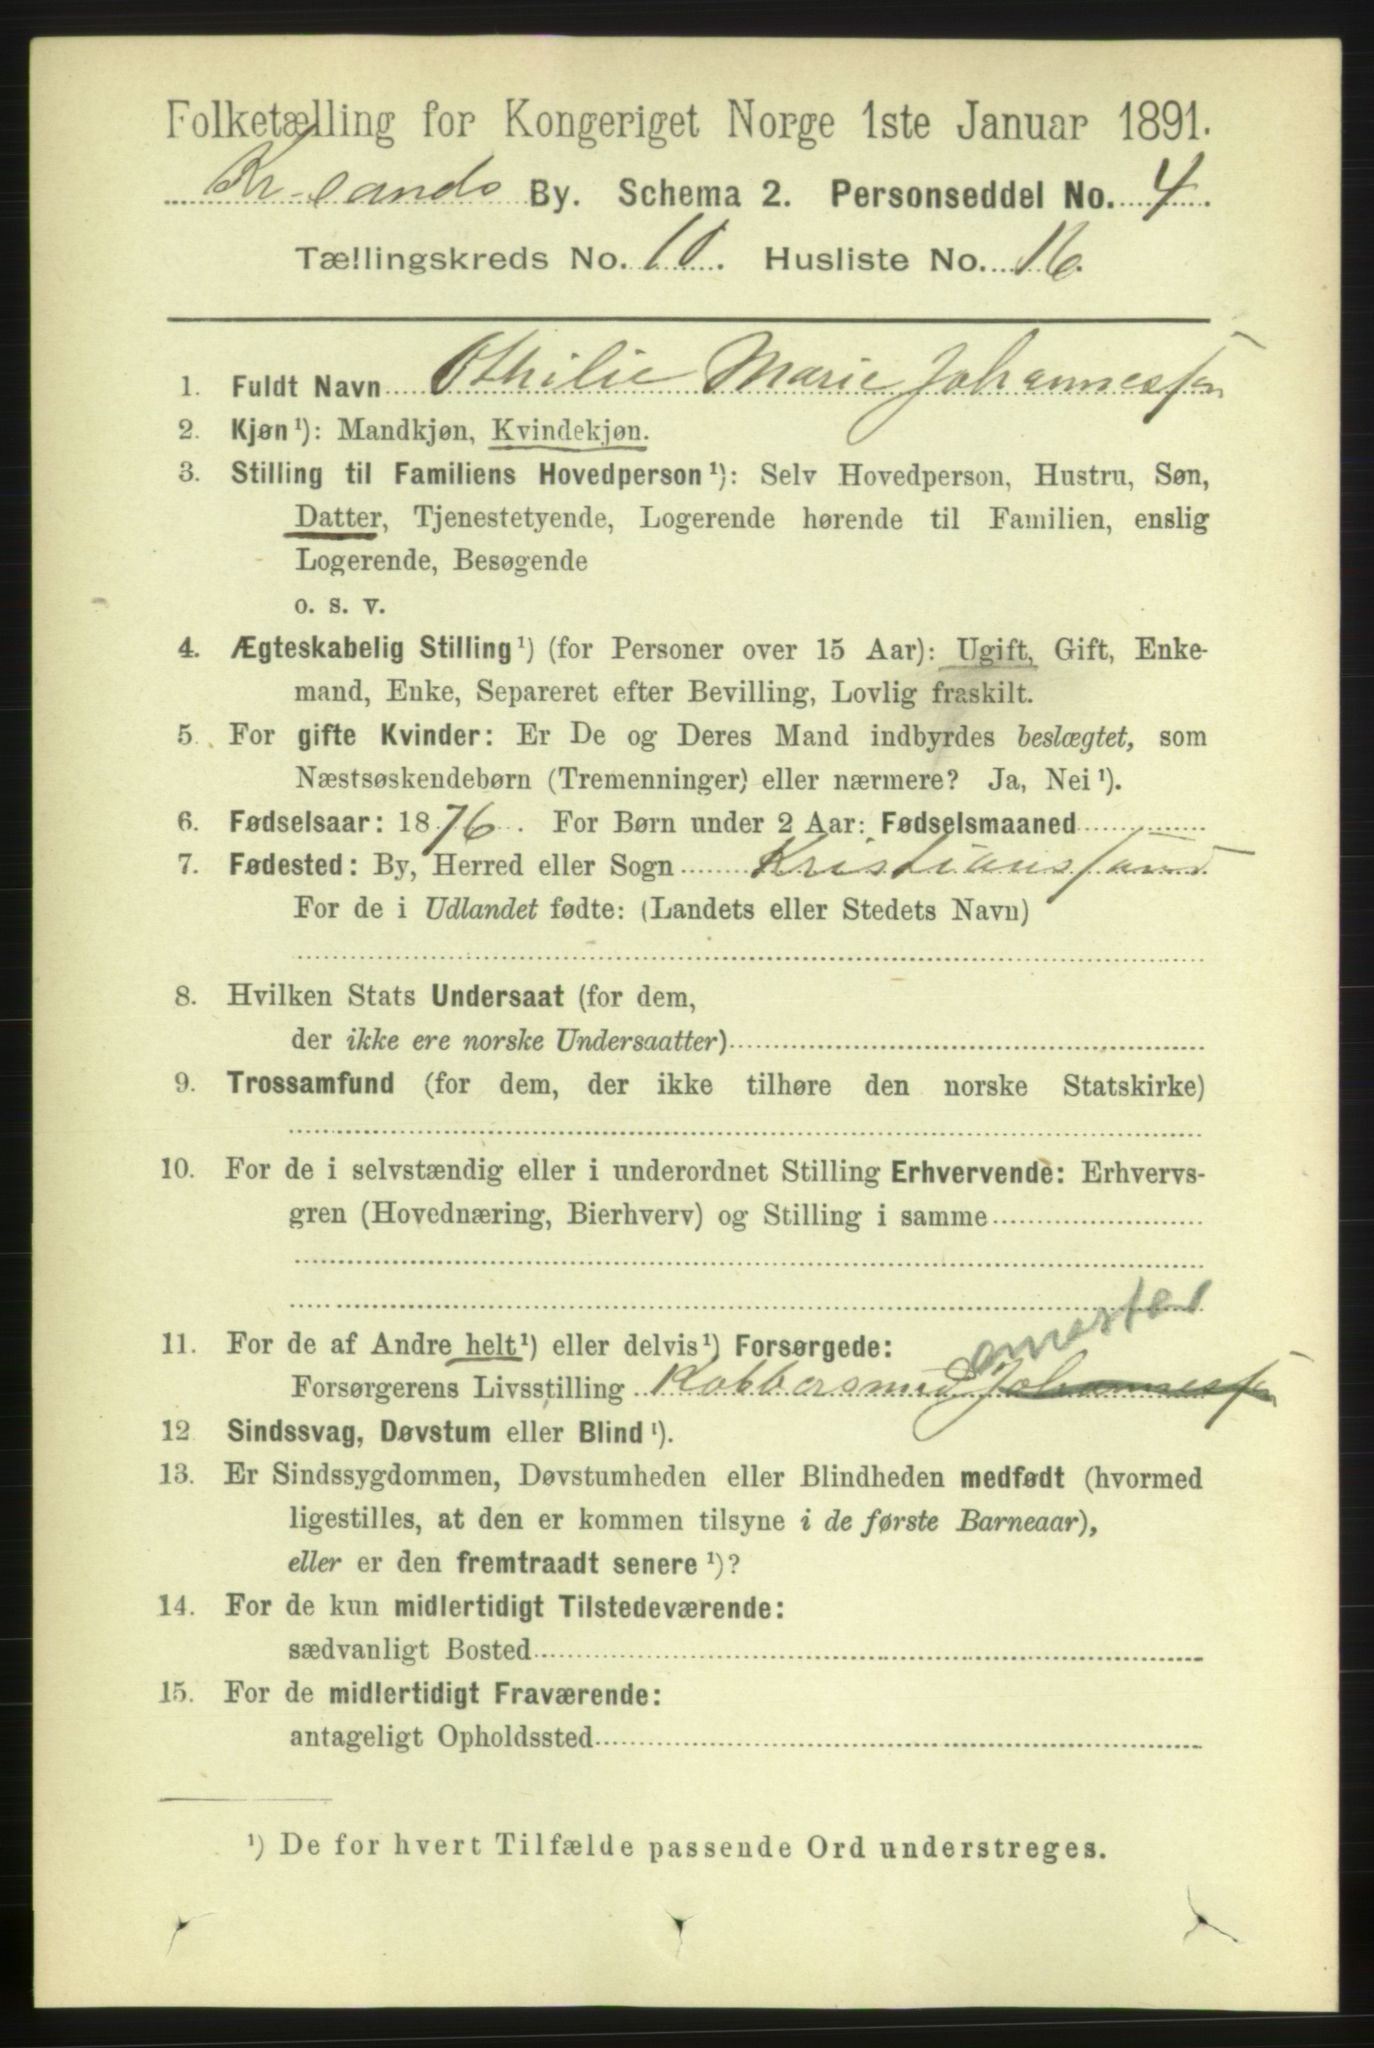 Folketælling for Kongeriget Norge 1ste Januar 1891.
Kr-sands By. Schema 2. Personseddel No. 4.
Tællingskreds No. 10. Husliste No. 16.
1. Fuldt Navn Othilie Marie Johannesen
2. Kjøn ¹): Mandkjøn, Kvindekjøn.
3. Stilling til Familiens Hovedperson ¹): Selv Hovedperson, Hustru, Søn,
Datter, Tjenestetyende, Logerende hørende til Familien, enslig
Logerende, Besøgende
o. s. v.
4. Ægteskabelig Stilling ¹) (for Personer over 15 Aar): Ugift, Gift, Enke-
mand, Enke, Separeret efter Bevilling, Lovlig fraskilt.
5. For gifte Kvinder: Er De og Deres Mand indbyrdes beslægtet, som
Næstsøskendebørn (Tremenninger) eller nærmere? Ja, Nei ¹).
6. Fødselsaar: 1876. For Børn under 2 Aar: Fødselsmaaned
7. Fødested: By, Herred eller Sogn Kristianssand
For de i Udlandet fødte: (Landets eller Stedets Navn)
8. Hvilken Stats Undersaat (for dem,
der ikke ere norske Undersaatter)
9. Trossamfund (for dem, der ikke tilhøre den norske Statskirke)
10. For de i selvstændig eller i underordnet Stilling Erhvervende: Erhvervs-
gren (Hovednæring, Bierhverv) og Stilling i samme
mester
11. For de af Andre helt ¹) eller delvis ¹) Forsørgede:
Forsørgerens Livsstilling Kobbersmed Johannesen
12 Sindssvag, Døvstum eller Blind ¹).
13. Er Sindssygdommen, Døvstumheden eller Blindheden medfødt (hvormed
ligestilles, at den er kommen tilsyne i de første Barneaar),
eller er den fremtraadt senere ¹)?
14. For de kun midlertidigt Tilstedeværende:
sædvanligt Bosted
15. For de midlertidigt Fraværende:
antageligt Opholdssted
¹) De for hvert Tilfælde passende Ord understreges.